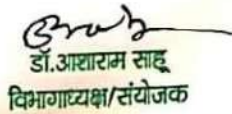 डॉ.आशाराम साहू
विभागाध्यक्ष/संयोजक